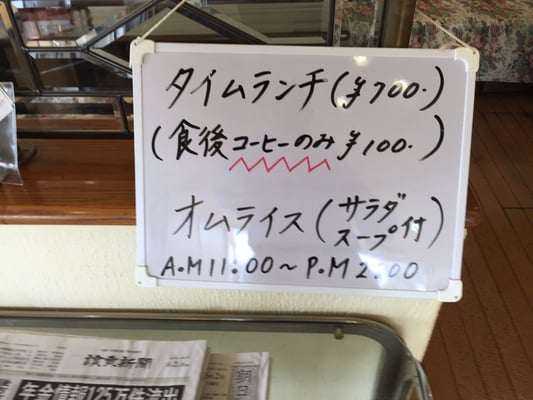 タイムランチ(¥700.)
(食後コーヒーのみ¥100.)
オムライス(サラダ
スープ付)
A.M11:00～P.M2:00
読売新聞
年金情報125万件流出
朝日